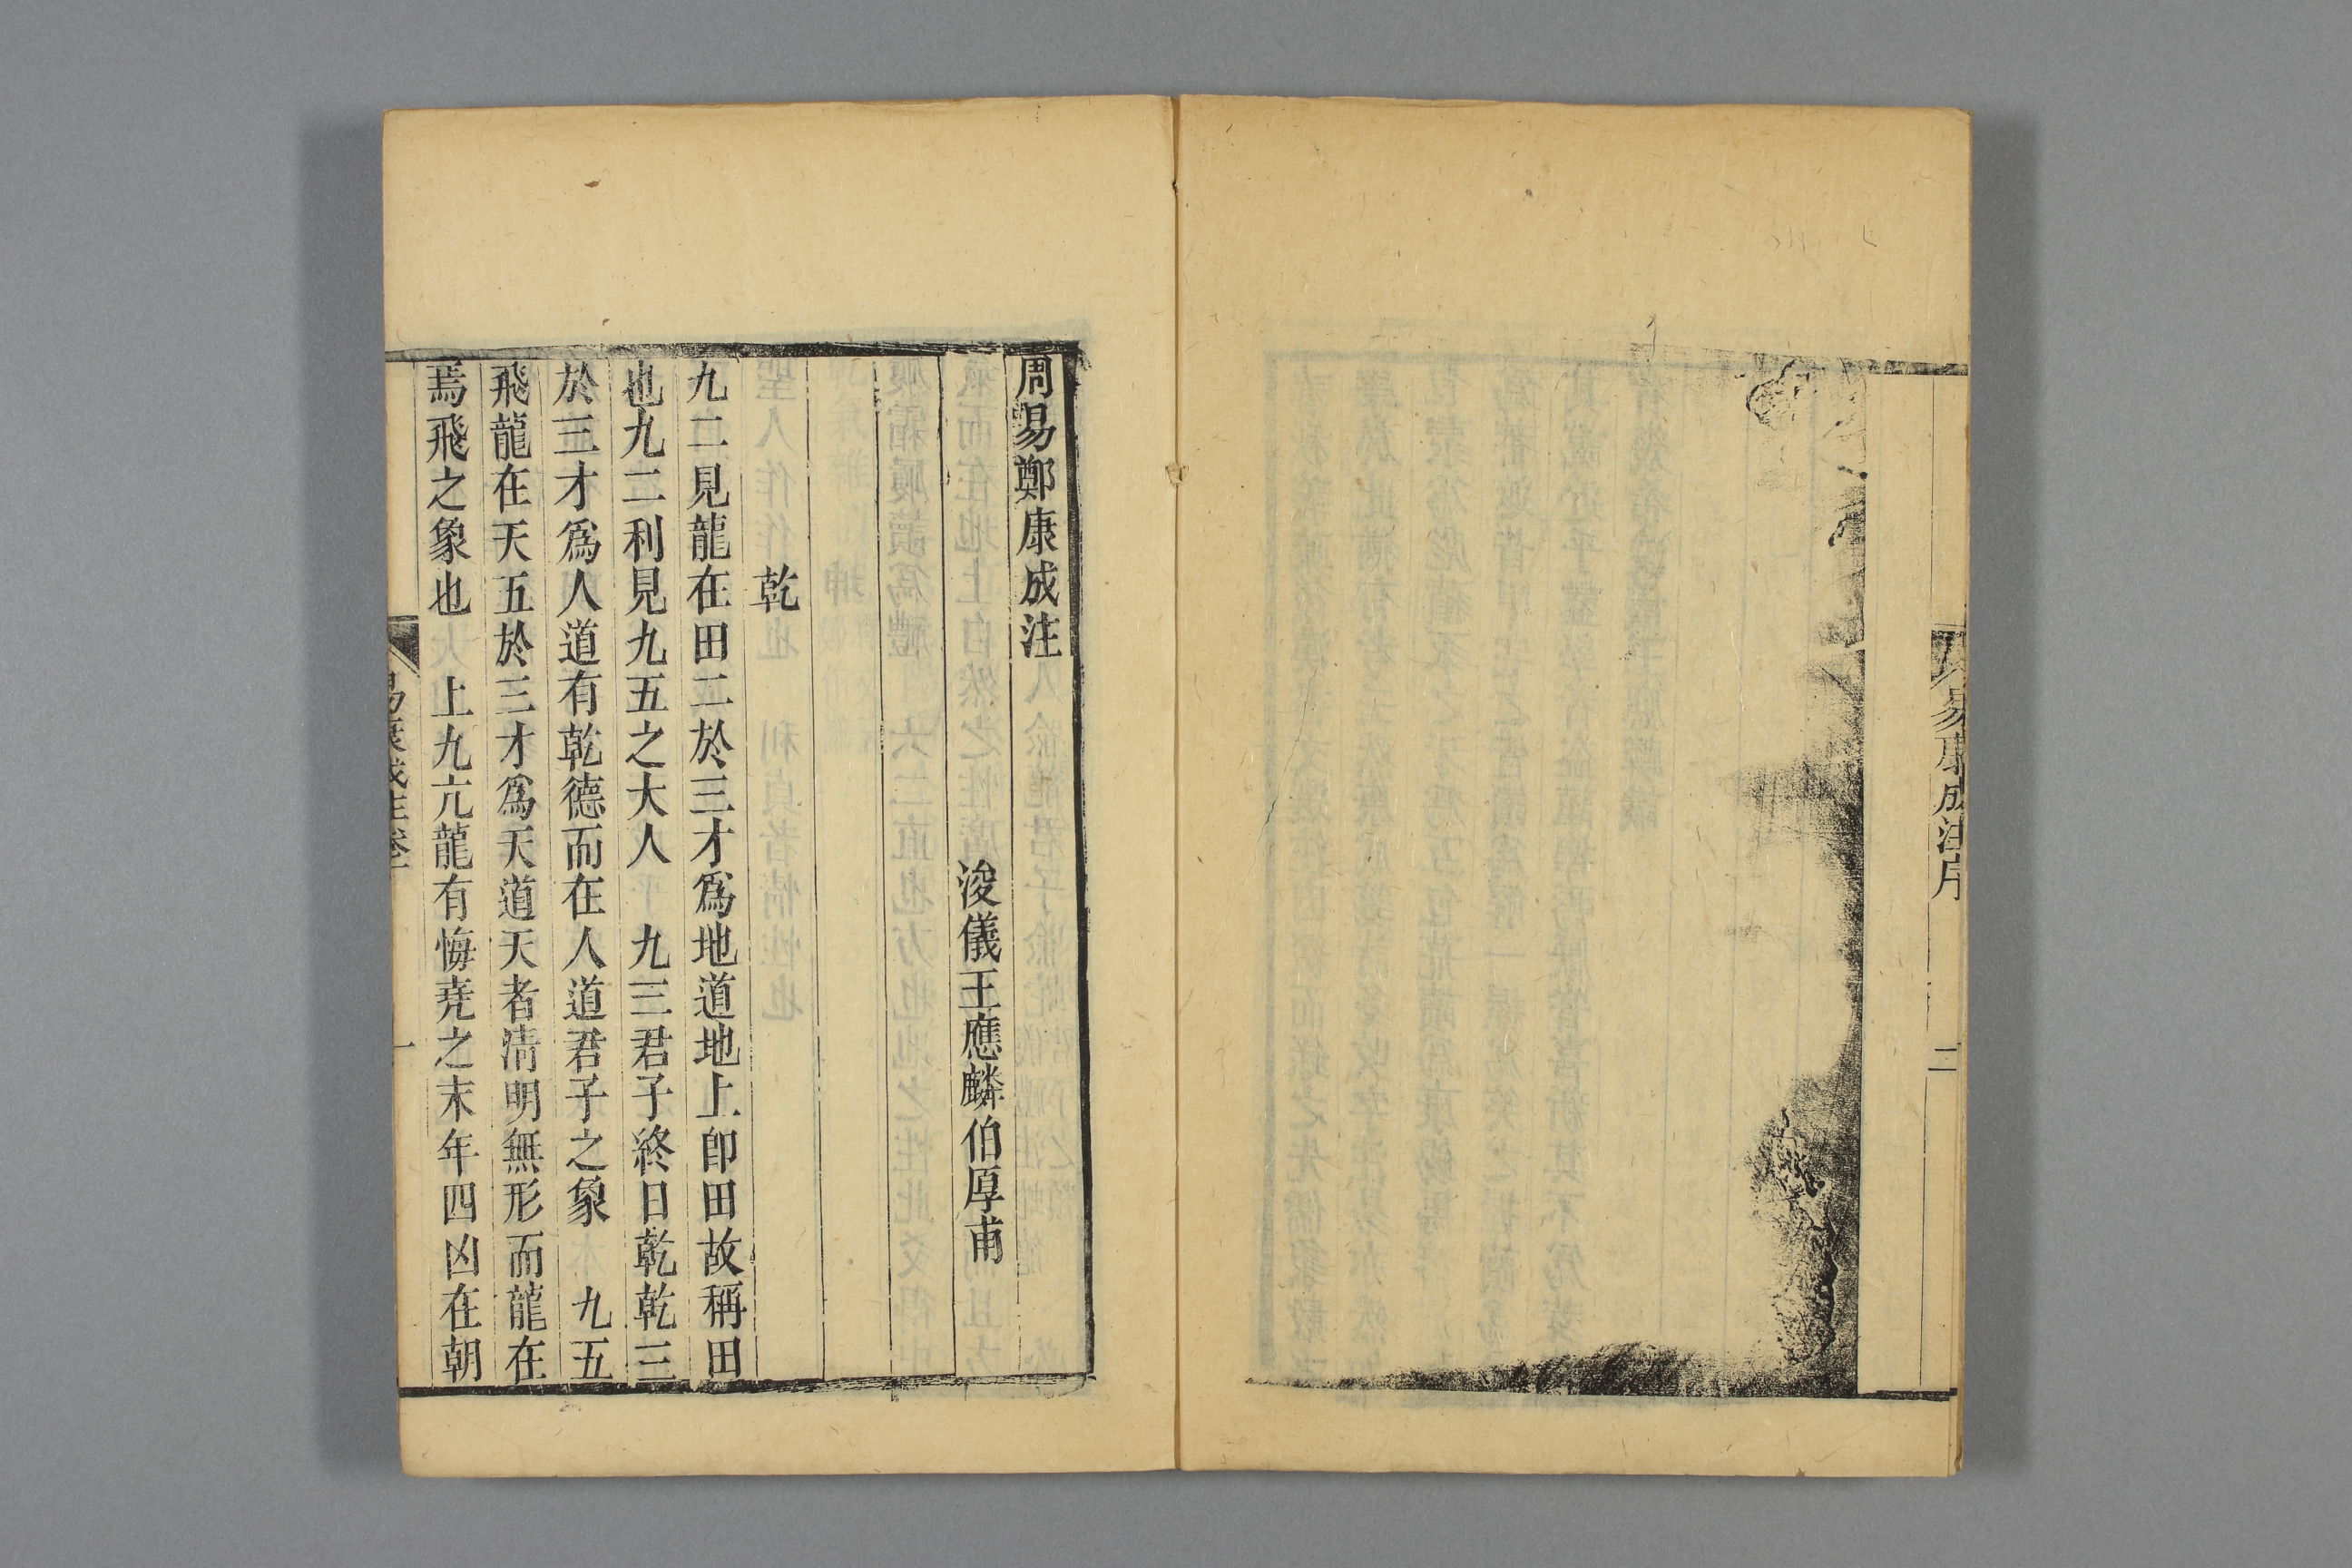 易康成注序
三
周易鄭康成注
浚儀王應麟伯厚甫
乾
九二見龍在田二於三才爲地道地上即田故稱田
也九二利見九五之大人　九三君子終日乾乾三
於三才爲人道有乾德而在人道君子之象　九五
飛龍在天五於三才爲天道天者清明無形而龍在
焉飛之象也　上九亢龍有悔堯之末年四凶在朝
易康成注卷
一